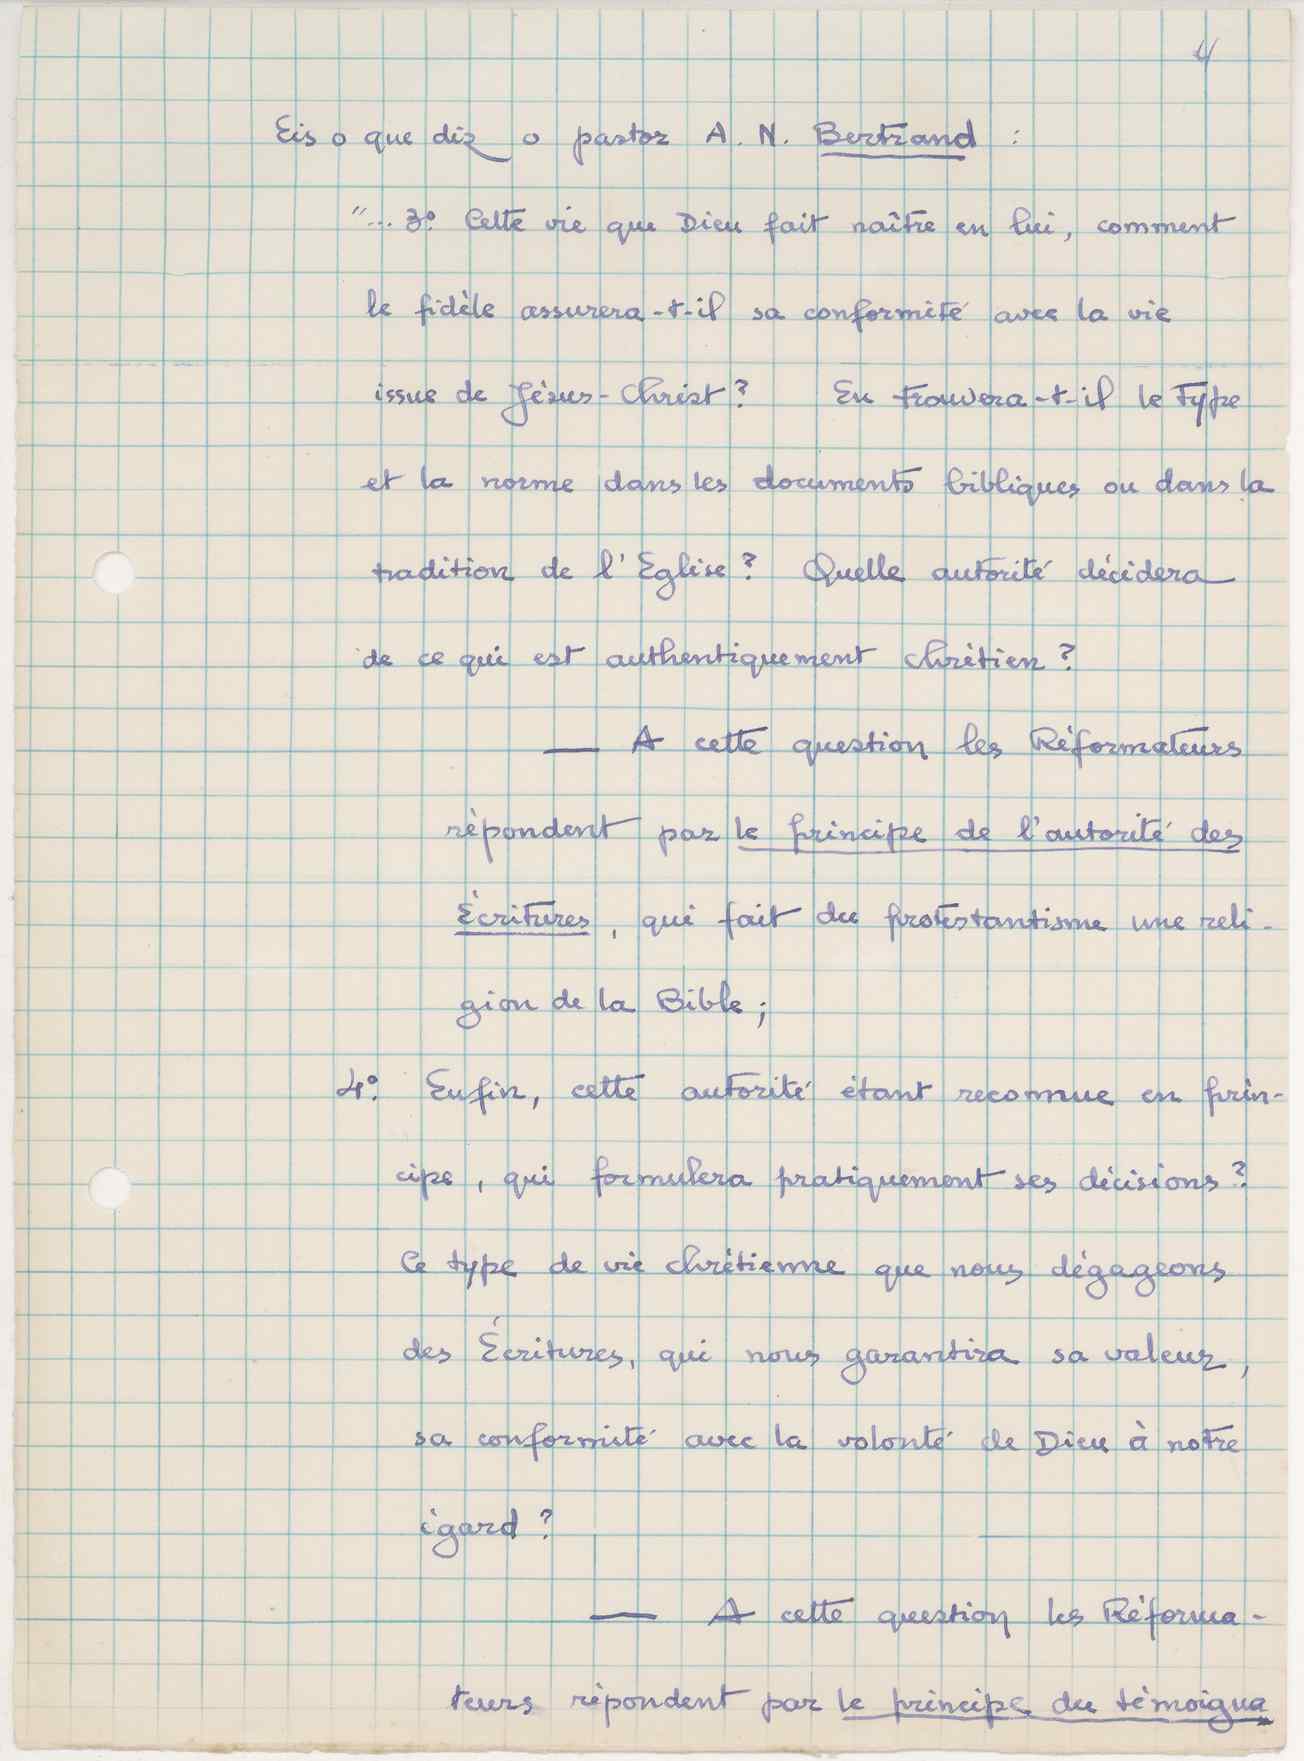 4
Eis o que diz o pastor A. N. Bertrand :
"... 3º. Cette vie que Dieu fait naître en lui, comment
le fidèle assurera-t-il sa conformité avec la vie
issue de Jésus-Christ ? En trouvera-t-il le type
et la norme dans les documents bibliques ou dans la
tradition de l'Eglise ? Quelle autorité décidera
de ce qui est authentiquement chrétien ?
— A cette question les Réformateurs
répondent par le principe de l'autorité des
Écritures, qui fait du protestantisme une reli-
gion de la Bible ;
4º. Enfin, cette autorité étant reconnue en prin-
cipe, qui formulera pratiquement ses décisions ?
Ce type de vie chrétienne que nous dégageons
des Écritures, qui nous garantira sa valeur,
sa conformité avec la volonté de Dieu à notre
égard ?
— A cette question les Réforma-
teurs répondent par le principe du témoigna